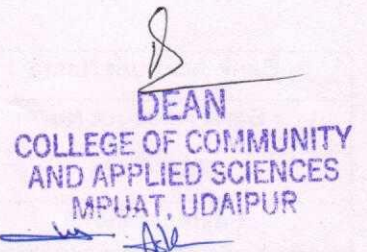 DEAN
COLLEGE OF COMMUNITY
AND APPLIED SCIENCES
MPUAT, UDAIPUR